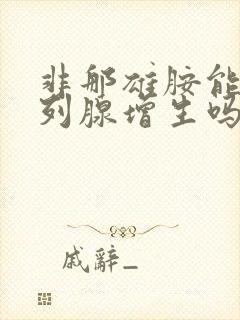 非那雄胺能
列腺增生吗
戚辭_